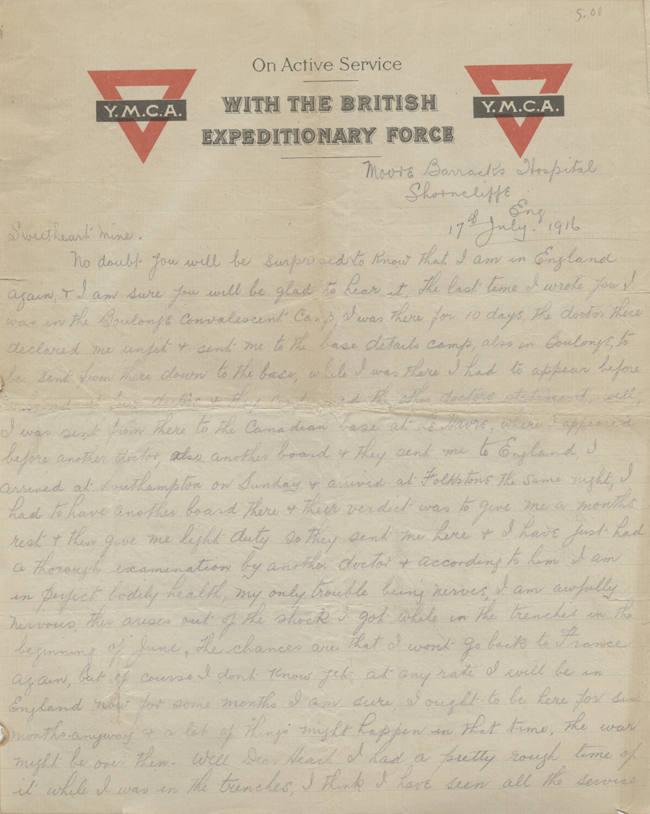 5.00
On Active Service
Y.M.C.A.
Y.M.C.A.
WITH THE BRITISH
EXPEDITIONARY FORCE
Moore Barracks Hospital
Shorncliffe
Eng
17th July. 1916
Sweetheart Mine.
No doubt you will be surprised to know that I am in England
again, & I am sure you will be glad to hear it, The last time I wrote you I
was in the Boulonge Convalescent Camp, I was there for 10 days, the doctor there
declared me unfit & sent me to the base details camp, also in Boulonge, to
be sent from there down to the base, while I was there I had to appear before
& they the other doctors statement, well,
I was sent from there to the Canadian base at Le Havre, where I appeared
before another doctor, also another board & they sent me to England, I
arrived at Southampton on Sunday & arrived at Folkstone the same night, I
had to have another board there & their verdict was to give me a months
rest & then give me light duty so they sent me here & I have just had
a thorough examination by another doctor & according to him I am
in perfect bodily health, my only trouble being nerves, I am awfully
nervous, this arises out of the shock I got while in the trenches in the
beginning of June, The chances are that I wont go back to France
again, but of course I dont know yet, at any rate I will be in
England now for some months I am sure, I ought to be here for six
months anyway & a lot of things might happen in that time, the war
might be over then. Well Dear Heart I had a pretty rough time of
it while I was in the trenches, I think I have seen all the service